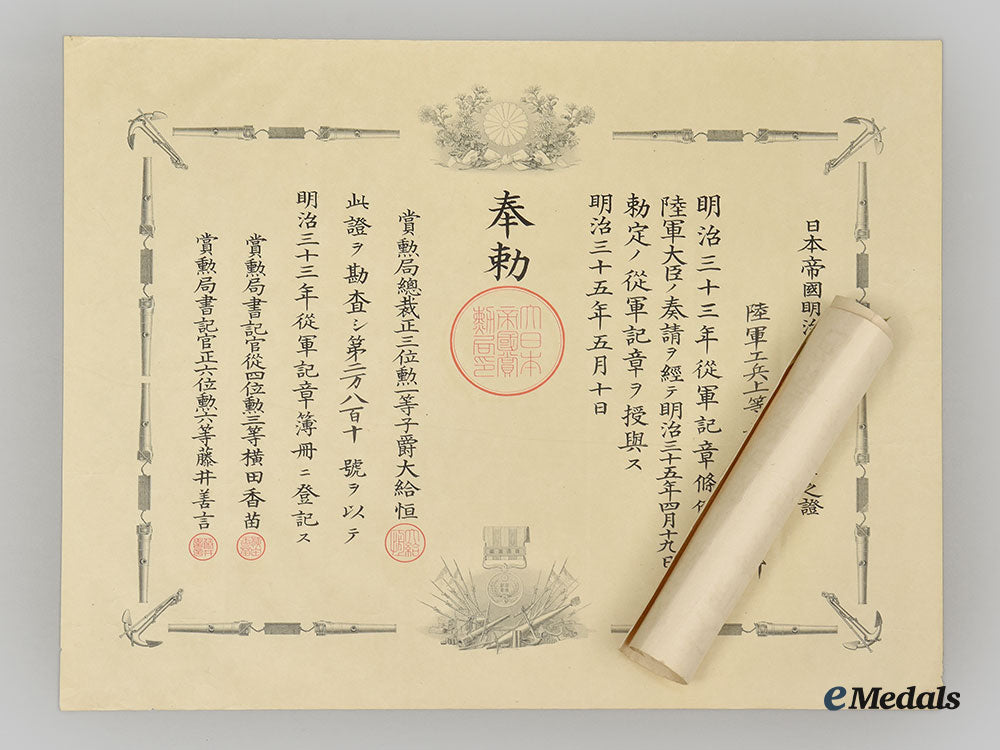 日本帝國明治
之證
陸軍工兵上等
明治三十三年從軍記章條
陸軍大臣ノ奏請ヲ經テ明治三十五年四月十九日
勅定ノ從軍記章ヲ授與ス
明治三十五年五月十日
奉勅
大日本帝國賞勳局印
賞勲局總裁正三位勲一等子爵大給恒
此證ヲ勘査シ第二万八百十號ヲ以テ
明治三十三年從軍記章簿册ニ登記ス
賞勲局書記官從四位勲三等横田香苗
賞勲局書記官正六位勲六等藤井善言
eMedals